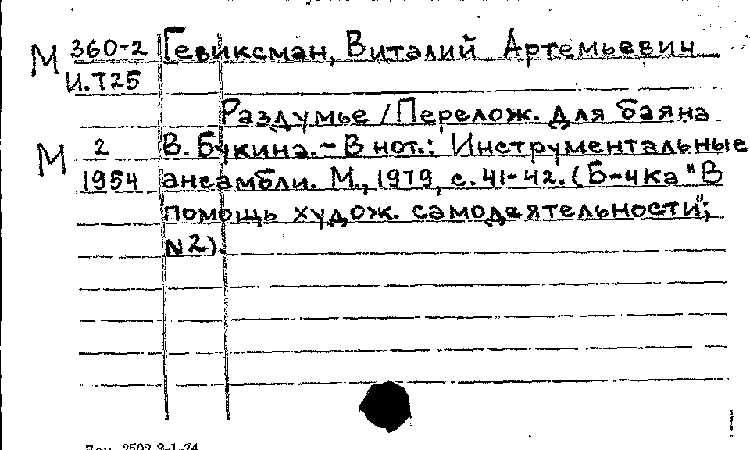 М 360-2 Гевиксман, Виталий Артемьевич
И.Т25
Раздумье / Перелож. для баяна
М 2 В. Букина. – В нот.: Инструментальные
1954 ансамбли. М., 1979, с. 41-42. (Б-чка "В
помощь худож. самодеятельности";
N2).
2592 9-1-74